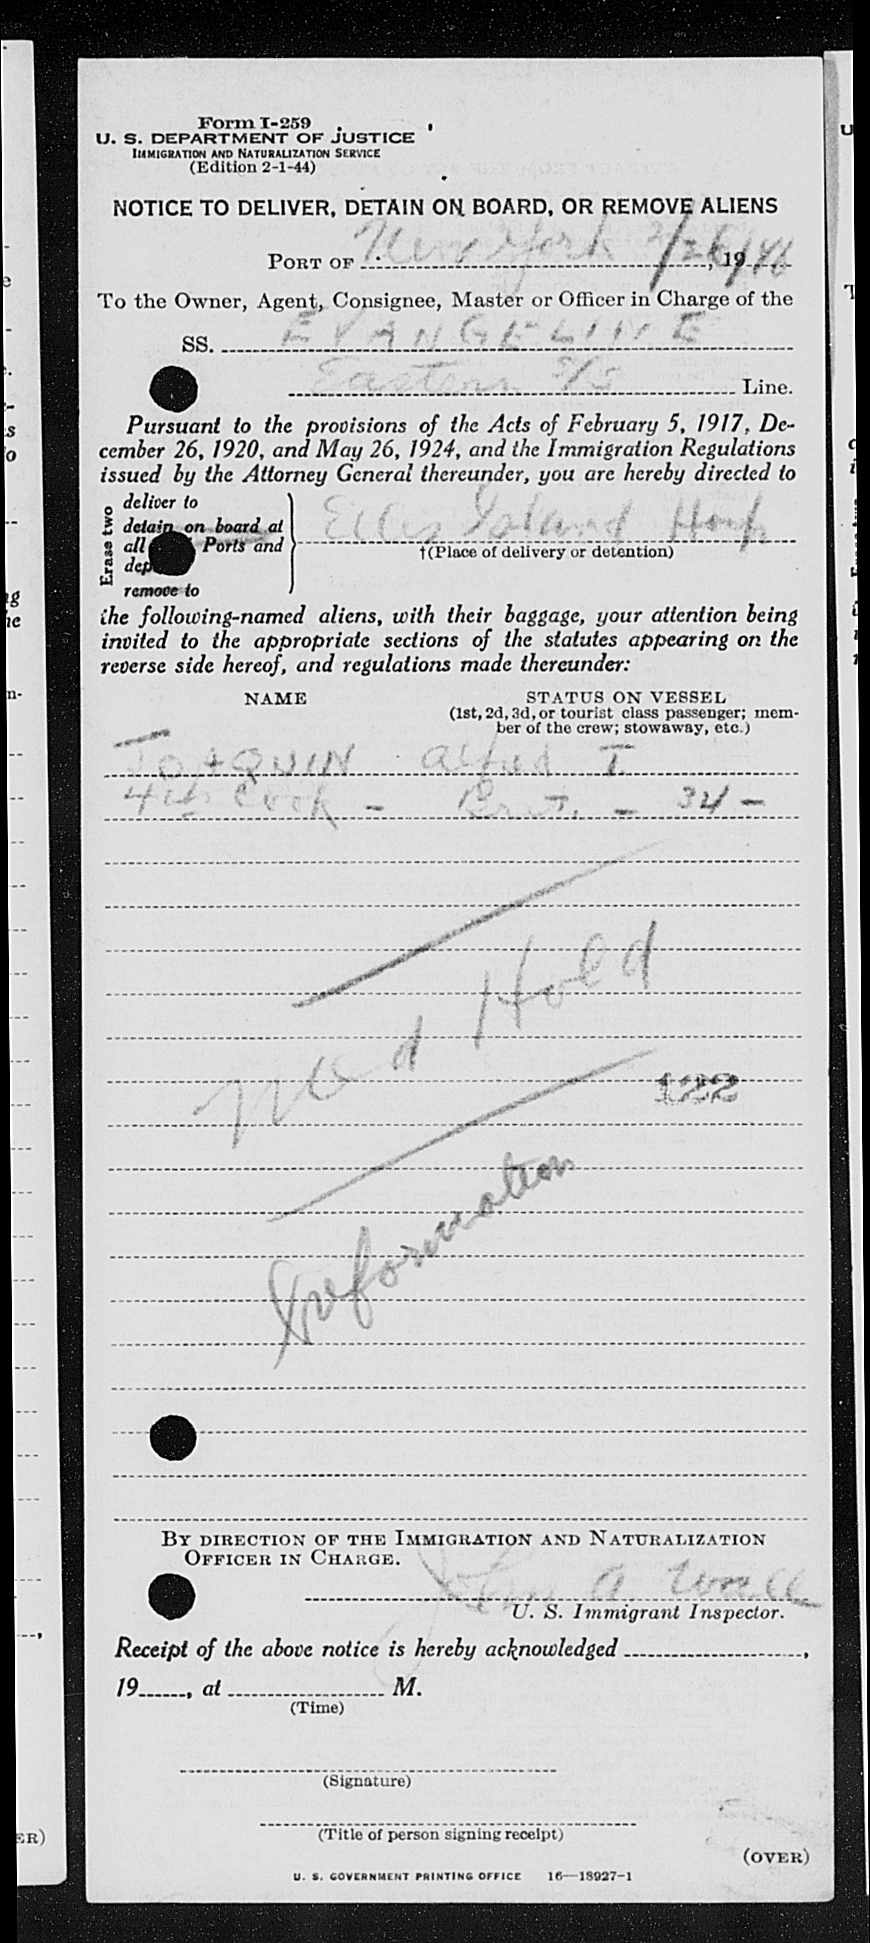 Form I-259
U. S. DEPARTMENT OF JUSTICE
IMMIGRATION AND NATURALIZATION SERVICE
(Edition 2-1-44)
NOTICE TO DELIVER, DETAIN ON BOARD, OR REMOVE ALIENS
PORT OF New York 2/26/, 1946
To the Owner, Agent, Consignee, Master or Officer in Charge of the
SS. EVANGELINE
Eastern S/S Line.
Pursuant to the provisions of the Acts of February 5, 1917, De-
cember 26, 1920, and May 26, 1924, and the Immigration Regulations
issued by the Attorney General thereunder, you are hereby directed to
Erase two
deliver to
detain on board at
all Ports and
dep
remove to
Ellis Island Hosp
†(Place of delivery or detention)
the following-named aliens, with their baggage, your attention being
invited to the appropriate sections of the statutes appearing on the
reverse side hereof, and regulations made thereunder:
NAME STATUS ON VESSEL
(1st, 2d, 3d, or tourist class passenger; mem-
ber of the crew; stowaway, etc.)
JOAQUIN Alfred T.
4th Cook - Brit. - 34 -
Med Hold
122
Information
BY DIRECTION OF THE IMMIGRATION AND NATURALIZATION
OFFICER IN CHARGE.
John A
U. S. Immigrant Inspector.
Receipt of the above notice is hereby acknowledged ,
19 , at M.
(Time)
(Signature)
(Title of person signing receipt)
(OVER)
U. S. GOVERNMENT PRINTING OFFICE 16—18927-1